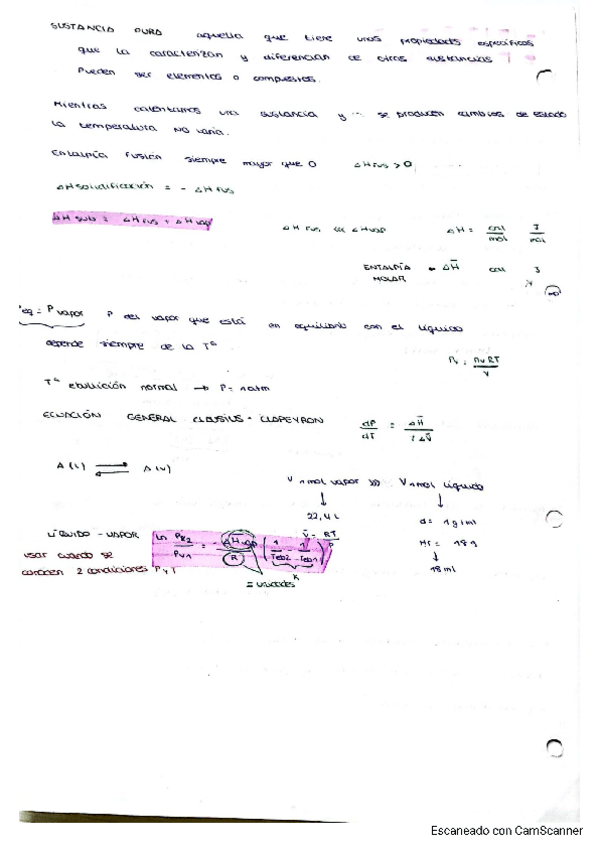 SUSTANCIA PURA aquella que tiene unas propiedades específicas
que la caracterizan y diferencian de otras sustancias
Pueden ser elementos o compuestos.
Mientras calentamos una sustancia y se producen cambios de estado
la temperatura NO varía.
Entalpía fusión siempre mayor que 0 ΔH fus > 0
ΔH solidificación = - ΔH fus
ΔH sub = ΔH fus + ΔH vap
ΔH fus <<< ΔH vap ΔH = cal/mol J/mol
ENTALPÍA MOLAR = ΔH̄ cal J
eq = P vapor P del vapor que está en equilibrio con el líquido
depende siempre de la Tª
Pv = nv RT / V
Tª ebullición normal → P = 1 atm
ECUACIÓN GENERAL CLAUSIUS - CLAPEYRON dP/dT = ΔH̄ / T ΔV̄
A (l) ⇌ A (v)
V 1 mol vapor >>> V 1 mol líquido
↓ ↓
22,4 L d = 1 g/ml
V̄ = RT/P Mr = 18 g
↓
18 ml
LÍQUIDO - VAPOR ln Pv2/Pv1 = - ΔH vap / R (1/Teb2 - 1/Teb1)
usar cuando se
conocen 2 condiciones P y T
= unidades K
Escaneado con CamScanner